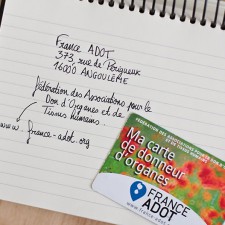 France ADOT
373, rue de Périgueux
16000 ANGOULÊME
Fédération des Associations pour le
Don d'Organes et de
Tissus humains.
www.france-adot.org
FÉDÉRATION DES ASSOCIATIONS POUR LE DON D'
Ma carte
de donneur
d'organes
FRANCE
ADOT
www.france-adot.